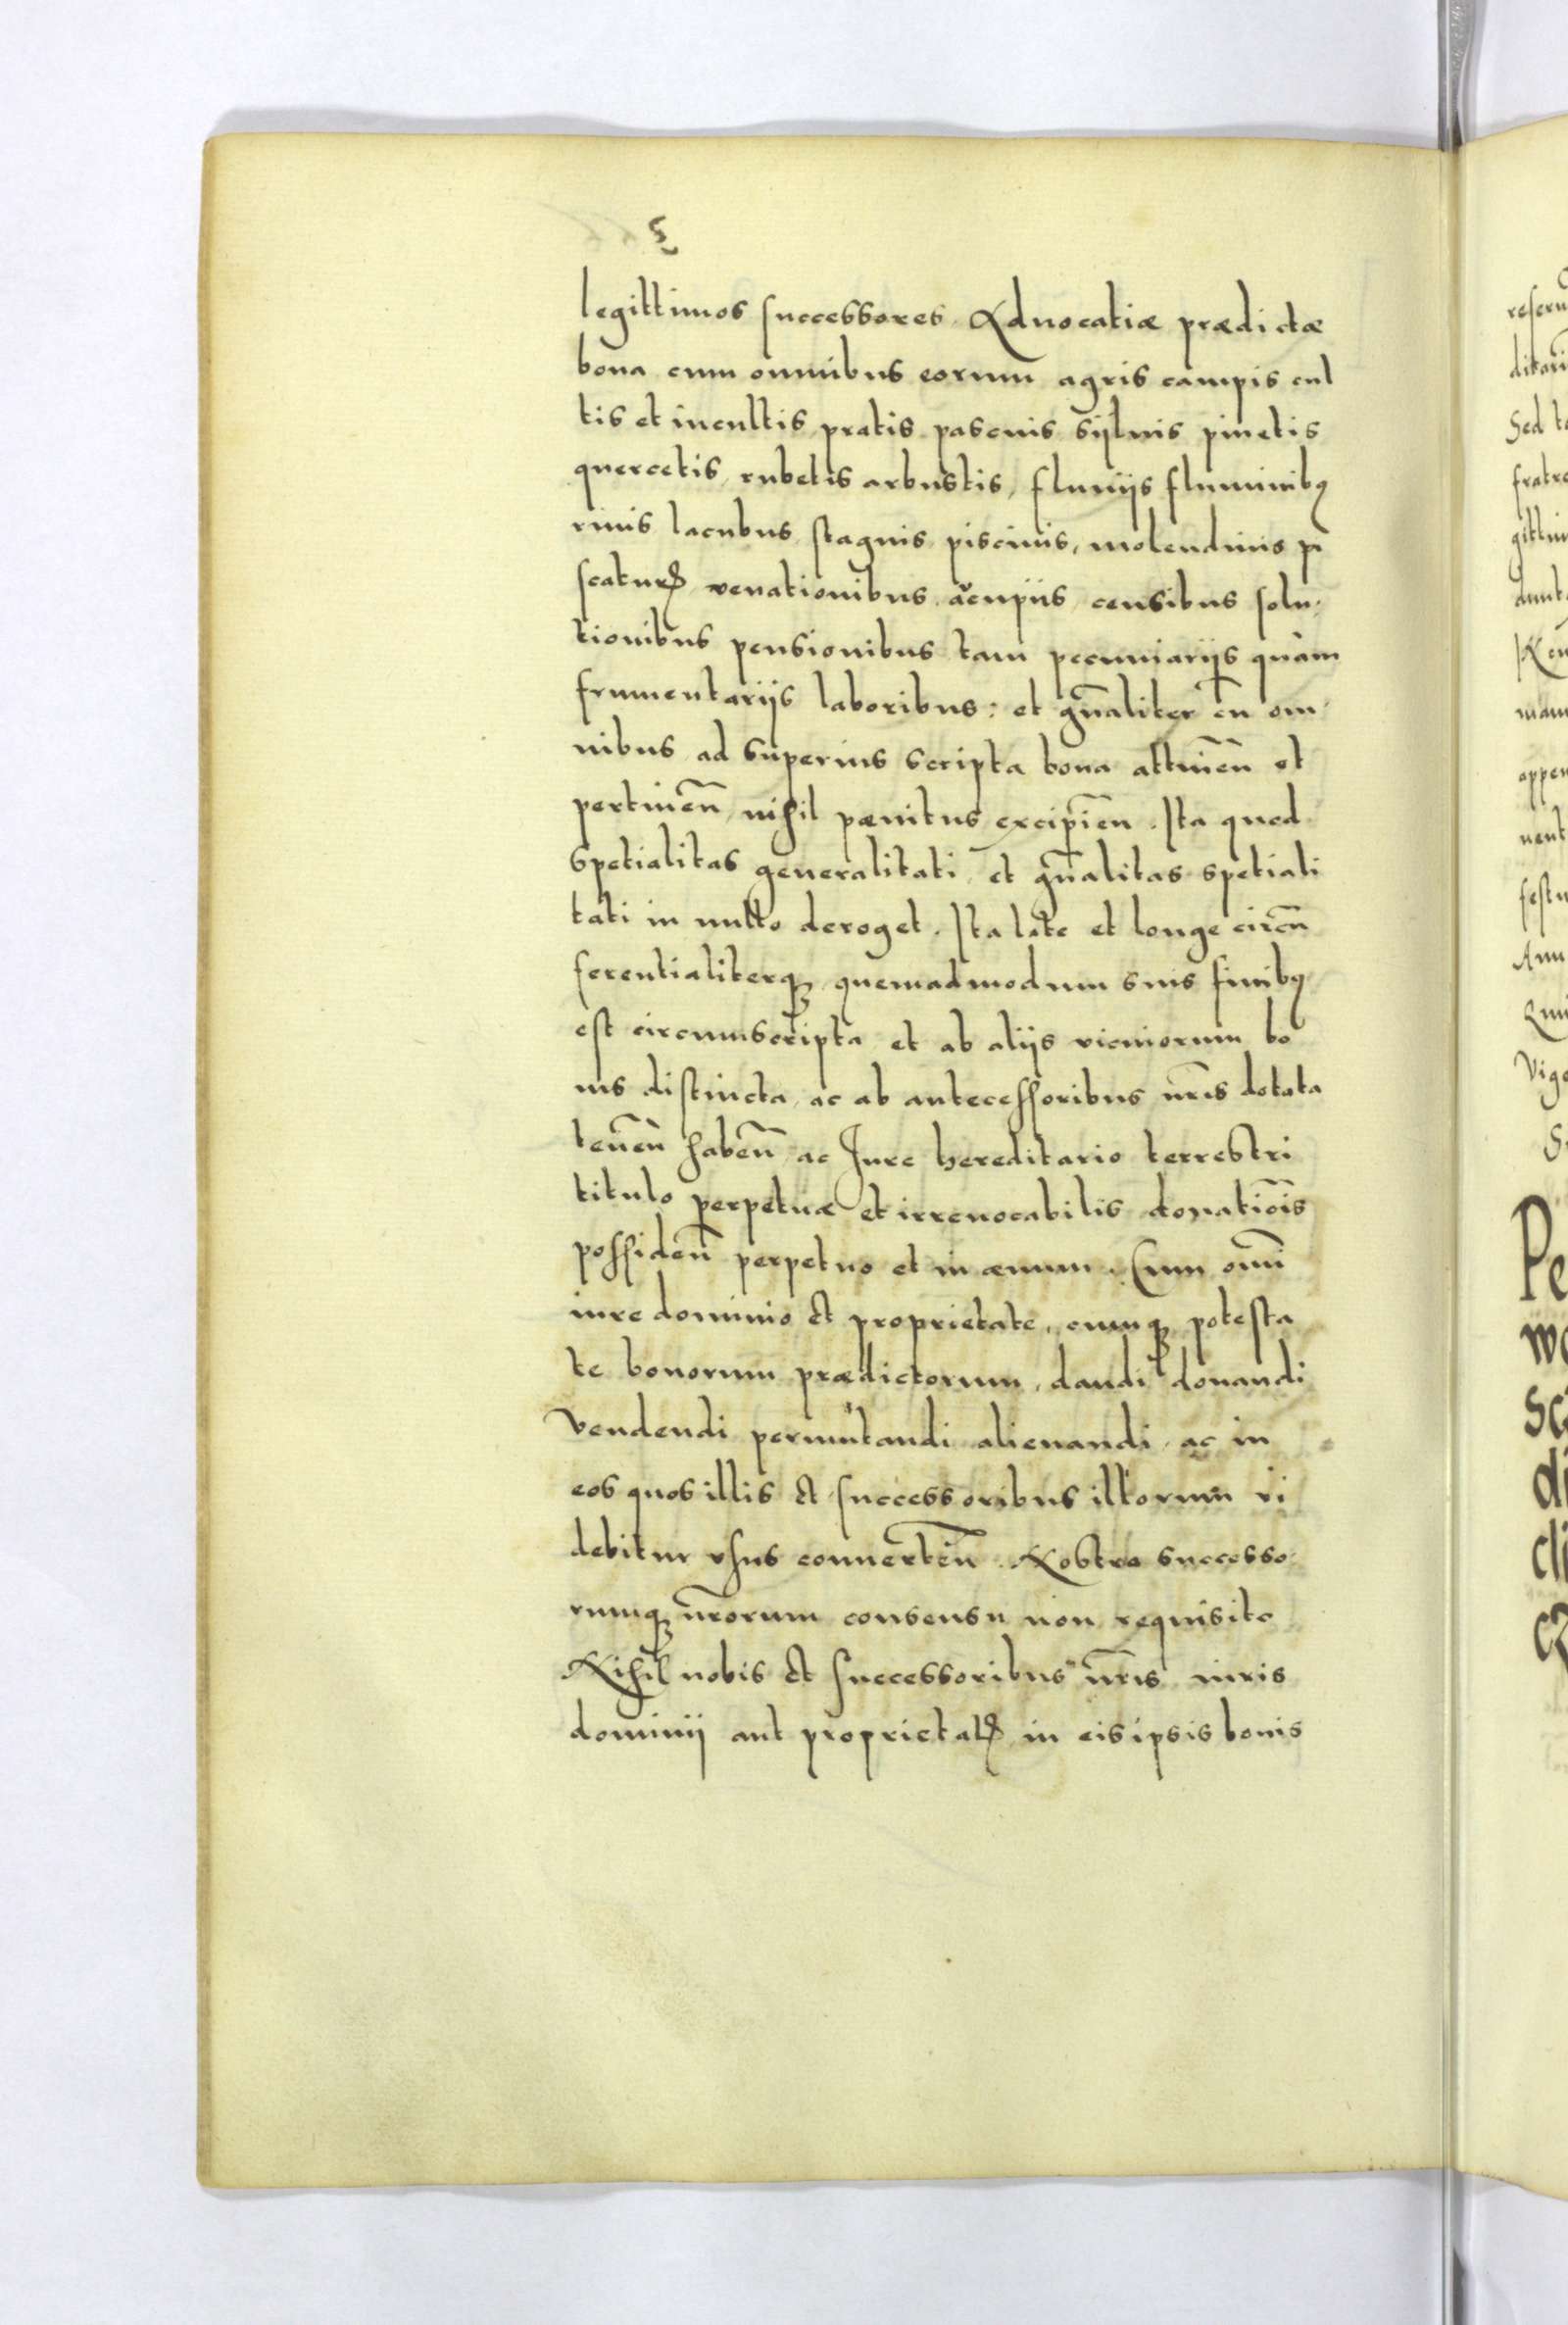 legittimos successores. Aduocatiæ prædictæ
bona cum omnibus eorum agris campis cul
tis et incultis, pratis pascuis syluis pinetis
quercetis, rubetis arbustis, fluuijs fluminibꝰ
riuis lacubus, stagnis piscinis, molendinis pi
scaturꝭ venationibus aucupijs censibus solu-
tionibus pensionibus tam pecuniarijs quàm
frumentarijs laboribus: et gn̄aliter cū om
nibus ad superius scripta bona attinēn̄ et
pertinēn̄, nihil pænitus excipiēn. Ita quod
spetialitas generalitati et gn̄alitas spetiali
tati in nullo deroget. Ita late et longe circū
ferentialiterqꝫ, quemadmodum suis finibꝰ
est circumscripta et ab alijs vicinorum bo
nis distincta, ac ab antecessoribus nr̄is dotata
tenēn̄ habēn̄, ac Jure hereditario terrestri
titulo perpetuæ et irreuocabilis donatiōis
possidēn̄ perpetuo et in æuum. Cum omī
iure dominio et proprietate, cumqꝫ potesta
te bonorum prædictorum, dandi donandi
vendendi permutandi alienandi, ac in
eos quos illis et successoribus illorum vi
debitur vsus conuertēn̄. Nostro successo
rumqꝫ nr̄orum consensu non requisito
Nihil nobis et successoribus nr̄is iuris
dominij aut proprietatꝭ in eis ipsis bonis